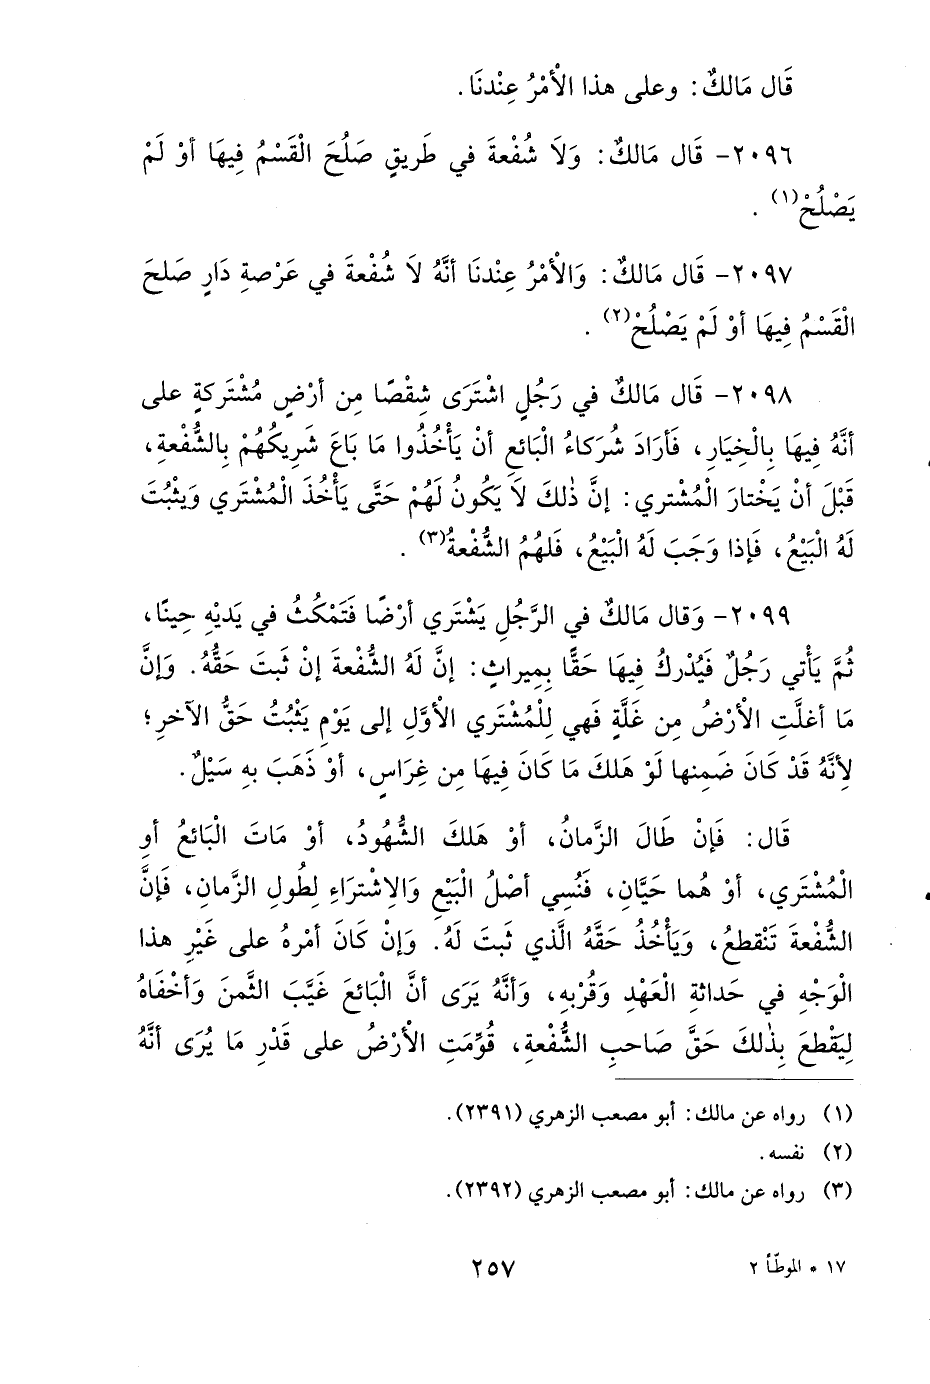 قَال مَالكٌ: وعلى هذا الأمْرُ عِنْدنَا.
٢٠٩٦- قَال مَالكٌ: وَلاَ شُفْعةَ في طَريقٍ صَلُحَ الْقَسْمُ فِيهَا أوْ لَمْ
يَصْلُحْ(١) .
٢٠٩٧- قَال مَالكٌ: وَالأمْرُ عِنْدنَا أنَّهُ لاَ شُفْعةَ في عَرْصةِ دَارٍ صَلحَ
الْقَسْمُ فِيهَا أوْ لَمْ يَصْلُحْ(٢) .
٢٠٩٨- قَال مَالكٌ في رَجُلٍ اشْتَرَى شِقْصًا مِن أرْضٍ مُشْتَركةٍ على
أنَّهُ فِيهَا بِالْخِيَارِ، فَأرَادَ شُرَكاءُ الْبَائعِ أنْ يَأْخُذُوا مَا بَاعَ شَريكُهُمْ بِالشُّفْعةِ،
قَبْلَ أنْ يَخْتارَ الْمُشْتري: إنَّ ذٰلكَ لاَ يَكُونُ لَهُمْ حَتَّى يَأْخُذَ الْمُشْتَري وَيَثْبُتَ
لَهُ الْبَيْعُ، فَإذا وَجَبَ لَهُ الْبَيْعُ، فَلهُمُ الشُّفْعةُ(٣) .
٢٠٩٩- وَقال مَالكٌ في الرَّجُلِ يَشْتَري أرْضًا فَتَمْكُثُ في يَديْهِ حِينًا،
ثُمَّ يَأْتي رَجُلٌ فَيُدْركُ فِيهَا حَقًّا بِميراثٍ: إنَّ لَهُ الشُّفْعةَ إنْ ثَبتَ حَقُّهُ. وَإنَّ
مَا أغلَّتِ الأرْضُ مِن غَلَّةٍ فَهي لِلْمُشْتَري الأوَّلِ إلى يَوْمِ يَثْبُتُ حَقُّ الآخرِ؛
لِأنَّهُ قَدْ كَانَ ضَمِنها لَوْ هَلكَ مَا كَانَ فِيهَا مِن غِرَاسٍ، أوْ ذَهَبَ بِهِ سَيْلٌ.
قَال: فَإنْ طَالَ الزَّمانُ، أوْ هَلكَ الشُّهُودُ، أوْ مَاتَ الْبَائعُ أوِ
الْمُشْتَري، أوْ هُما حَيَّانِ، فَنُسِي أصْلُ الْبَيْعِ وَالاِشْتِرَاءِ لِطُولِ الزَّمانِ، فَإنَّ
الشُّفْعةَ تَنْقطعُ، وَيَأْخُذُ حَقَّهُ الَّذي ثَبتَ لَهُ. وَإنْ كَانَ أمْرهُ على غَيْرِ هذا
الْوَجْهِ في حَداثةِ الْعَهْدِ وَقُرْبهِ، وَأنَّهُ يَرَى أنَّ الْبَائعَ غَيَّبَ الثَّمنَ وَأخْفَاهُ
لِيَقْطعَ بِذٰلكَ حَقَّ صَاحبِ الشُّفْعةِ، قُوِّمَتِ الأرْضُ على قَدْرِ مَا يُرَى أنَّهُ
(١) رواه عن مالك: أبو مصعب الزهري (٢٣٩١).
(٢) نفسه.
(٣) رواه عن مالك: أبو مصعب الزهري (٢٣٩٢).
١٧ * الموطّأ ٢
٢٥٧